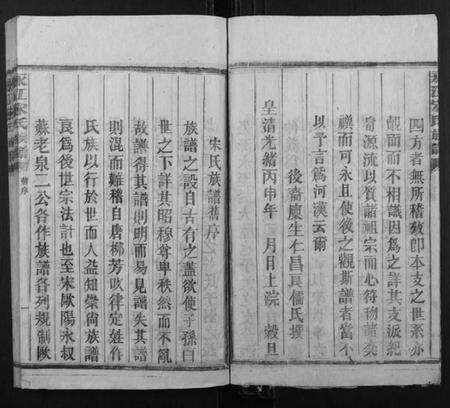 四方者無所稽攷即本支之世系亦
覿面而不相識因為之詳其支派紀
源流以質諸祖宗而心符
禩而可永且使後之觀斯譜者當不
以予言為河漢云爾
後裔廩生仁昌良儒氏撰
皇清光緒丙申年 月日上浣 穀旦
宋氏族譜舊序
族譜之設自古有之盖欲使子孫百
世之下詳其昭穆尊卑秩然而不亂
故譜得其譜則明而易見譜失其譜
則混而難稽自唐柳芳攷律定姓作
氏族以行於世而人益知崇尚族譜
良為後世宗法計也至宋歐陽永叔
蘇老泉二公各作族譜各列規制歐
宋氏族譜
舊序
一